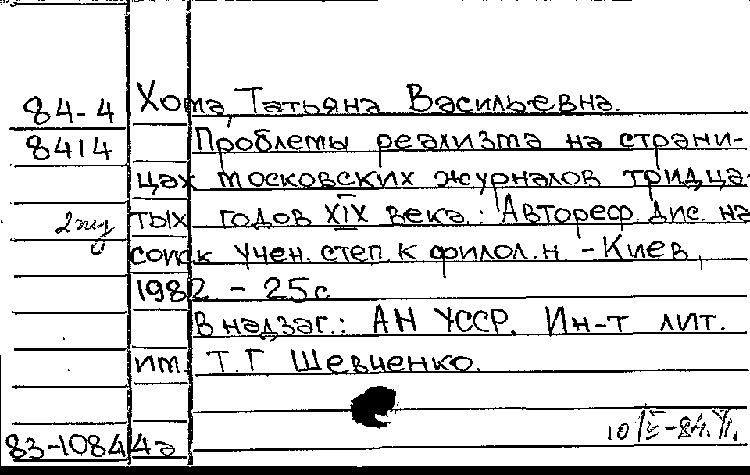 84-4 Хома, Татьяна Васильевна.
8414 Проблемы реализма на страни-
цах московских журналов тридца-
тых годов XIX века.: Автореф. дис. на
соиск учен. степ. к филол. н - Киев,
1982 - 25с
В надзаг.: АН УССР. Ин-т лит.
им. Т. Г Шевченко.
83-10844а